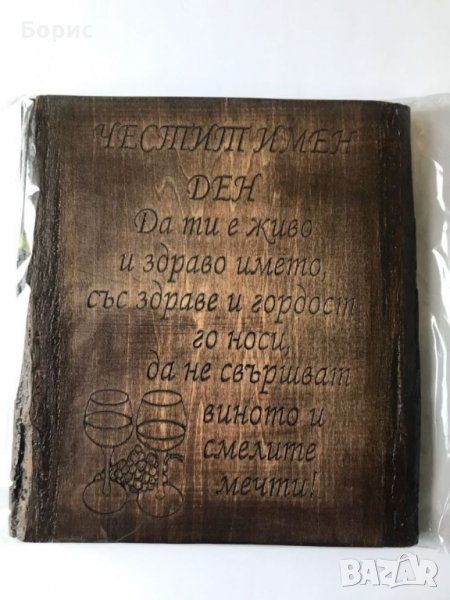 Борис
ЧЕСТИТ ИМЕН
ДЕН
Да ти е живо
и здраво името,
със здраве и гордост
го носи,
да не свършват
виното и
смелите
мечти!
BAZAR